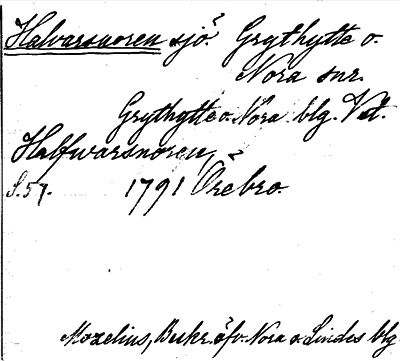 Halvarsnoren sjö. Grythytte o.
Nora snr.
Grythytte o. Nora blg. Vstm.
Halfwarsnoren,
S. 57. 1791 Örebro.
Mozelius, Beskr. öfv. Nora o. Lindes blg.